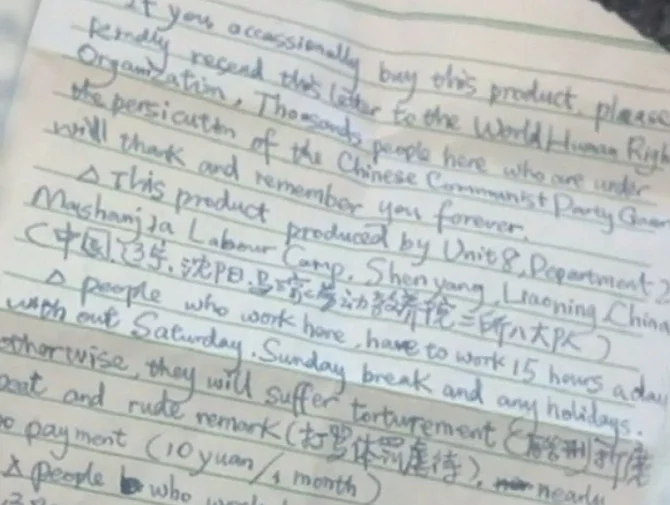 If you occassionally buy this product, please
kindly resend this letter to the World Human Righ
Organization. Thousands people here who are under
the persicution of the Chinese Communist Party
will thank and remember you forever.
△ This product produced by Unit 8, Department 2
Mashanjia Labour Camp, Shenyang, Liaoning, China
(中国, 辽宁, 沈阳 马三家劳动教养院二所八大队)
△ people who work here, have to work 15 hours a day
with out Saturday, Sunday break and any holidays.
otherwise, they will suffer torturement
and rude remark (打骂体罚虐待), nearly
payment (10 yuan / 1 month)
△ people who